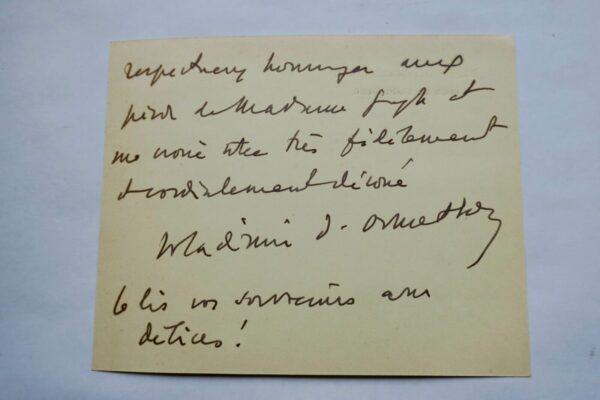 respectueux hommages aux
pieds de Madame et
me croire votre très fidèlement
et cordialement dévoué
Wladimir d'Ormesson
Je lis vos souvenirs avec
délices !